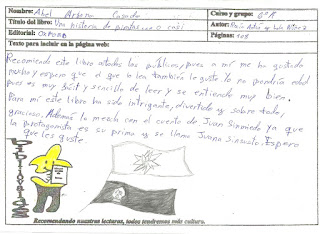 Nombre: Abel Casado
Curso y grupo: 6º A
Título del libro: Una historia de piratas... o casi
Autor:
Editorial: OXFORD
Páginas: 108
Texto para incluir en la página web:
Recomiendo este libro a todos los públicos, pues a mí me ha gustado
mucho y espero que al que lo lea también le guste lo no perdería nada
pues es muy fácil y sencillo de leer y se entiende muy bien.
Para mí este libro ha sido intrigante, divertido y sobre todo,
gracioso. Además lo mezcla con el cuento de Juan Sinmiedo ya que
la protagonista es su prima y se llama Juana Sinsusto. Espero
que les guste.
Recomendando nuestras lecturas, todos tendremos más cultura.